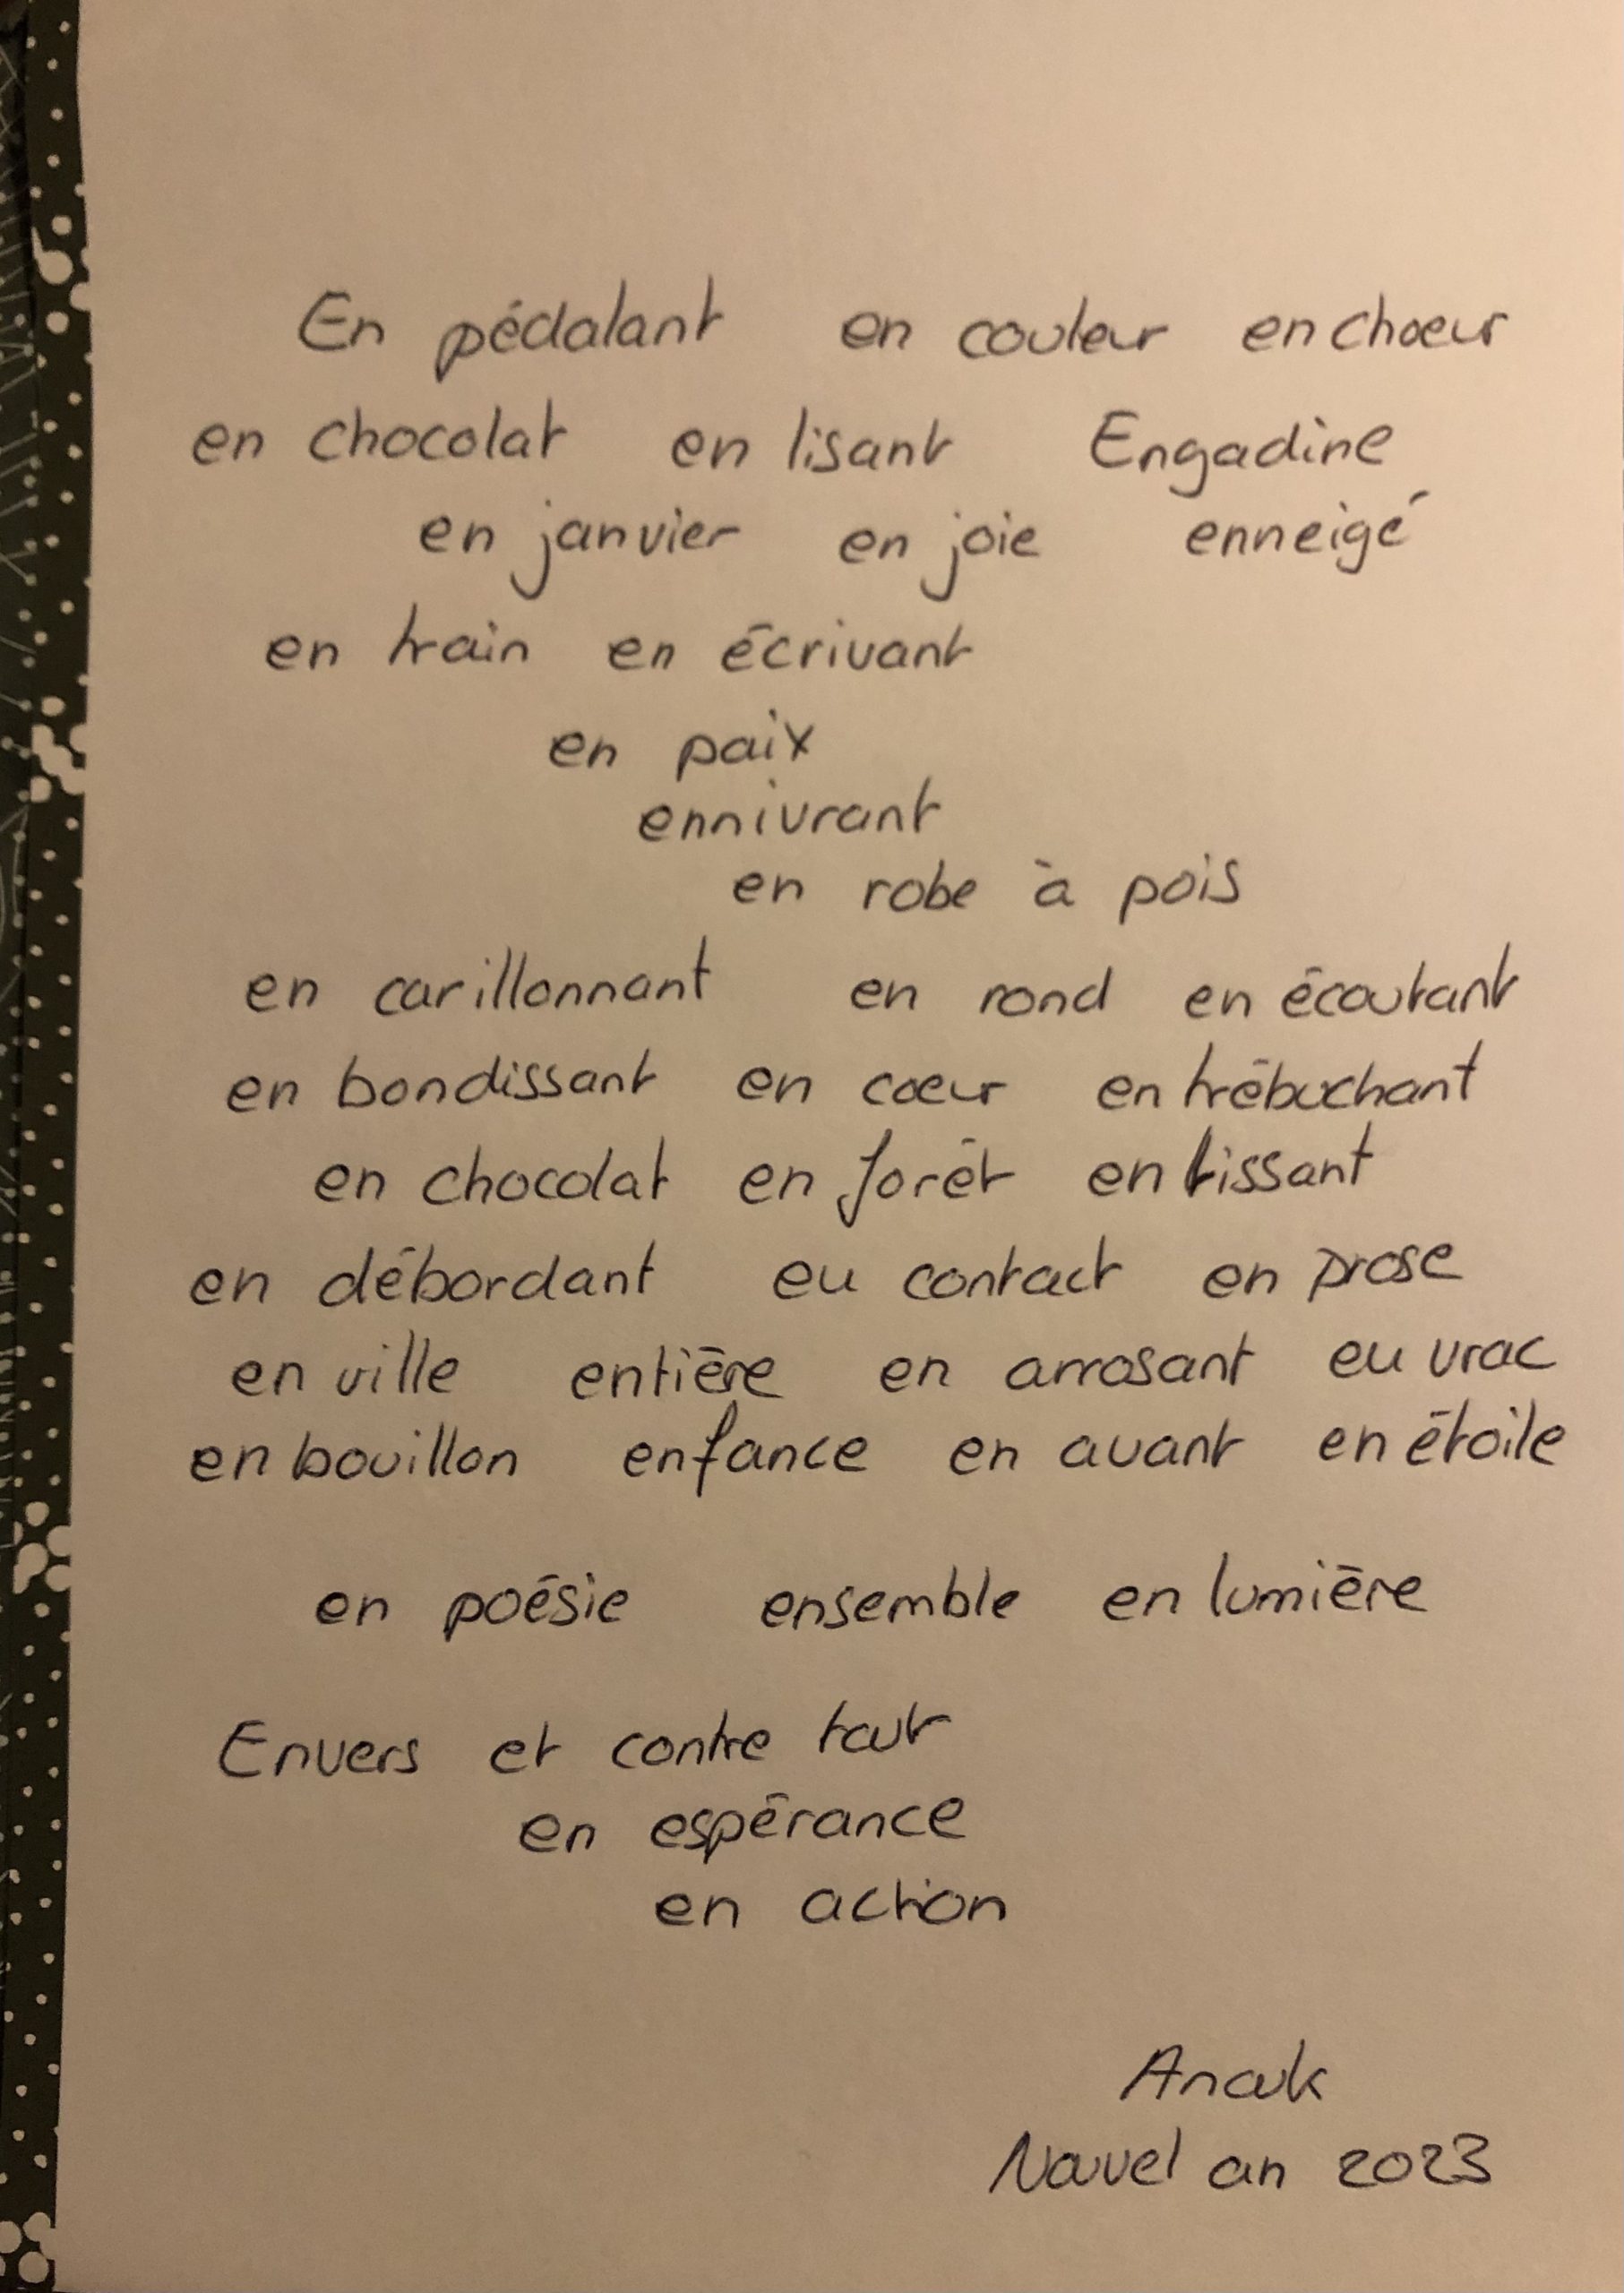 En pédalant en couleur en choeur
en chocolat en lisant Engadine
en janvier en joie enneigé
en train en écrivant
en paix
ennivrant
en robe à pois
en carillonnant en rond en écoutant
en bondissant en coeur en trébuchant
en chocolat en forêt en tissant
en débordant en contact en prose
en ville entière en arrosant en vrac
en bouillon enfance en avant en étoile
en poésie ensemble en lumière
Envers et contre tout
en espérance
en action
Anouk
Nouvel an 2023